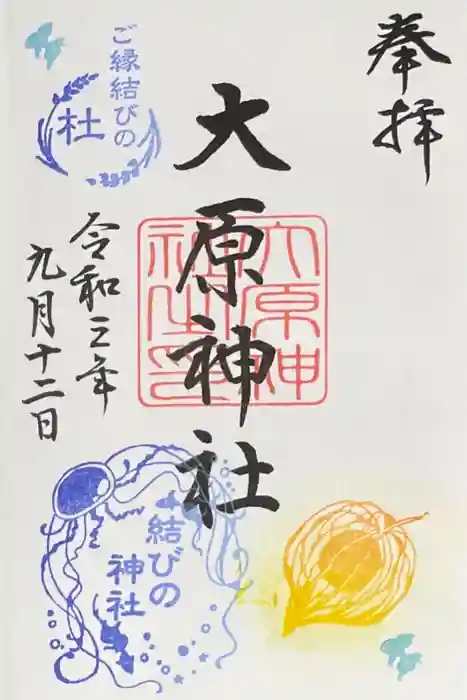 奉拝
大原神社
大原神社印
令和三年
九月十二日
ご縁結びの
杜
結びの
神社